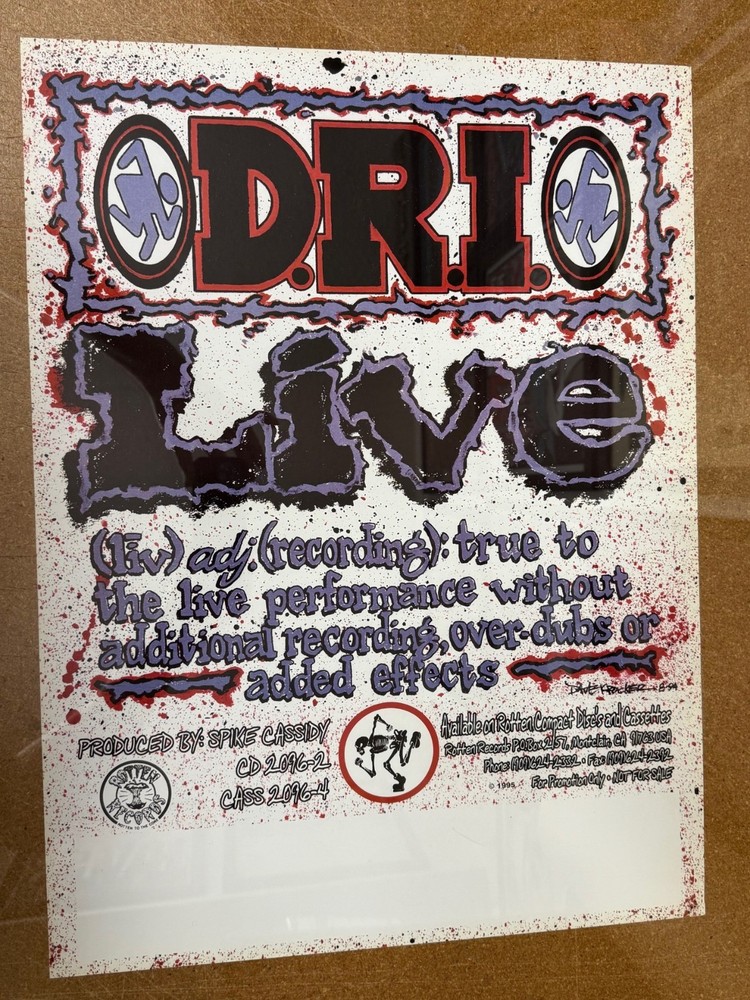 D.R.I.
Live
(līv) adj. (recording): true to
the live performance without
additional recording, over-dubs or
added effects
PRODUCED BY: SPIKE CASSIDY
CD 2096-2
CASS 2096-4
ROTTEN
RECORDS
Available on Rotten Compact Disc's and Cassettes
Rotten Records P.O.Box 2157, Montclair, CA 91763 USA
Phone (909)624-2332 • Fax (909)624-2392
For Promotion Only • NOT FOR SALE
© 1995